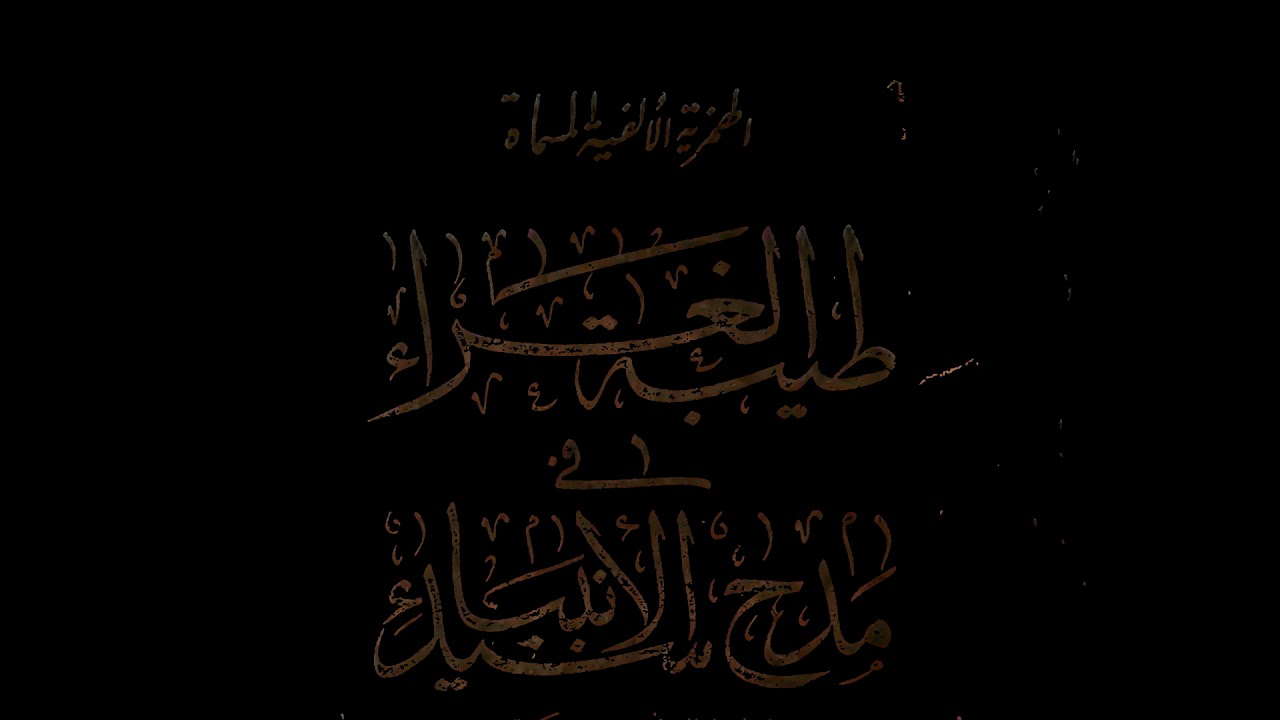 الهمزية الألفية المسماة
طيبة الغراء
في
مدح سيد الأنبياء